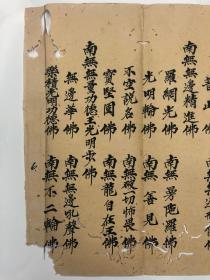 善山佛
南無無邊精進佛
羅網光佛 南無旃陀羅佛
光明輪佛 南無善見佛
不空說名佛 南無破一切怖畏佛
寶堅固佛 南無龍自在王佛
南無無量功德王光明火佛
無邊華佛 南無無邊吼聲佛
樂積光明功德佛 南無不二輪佛